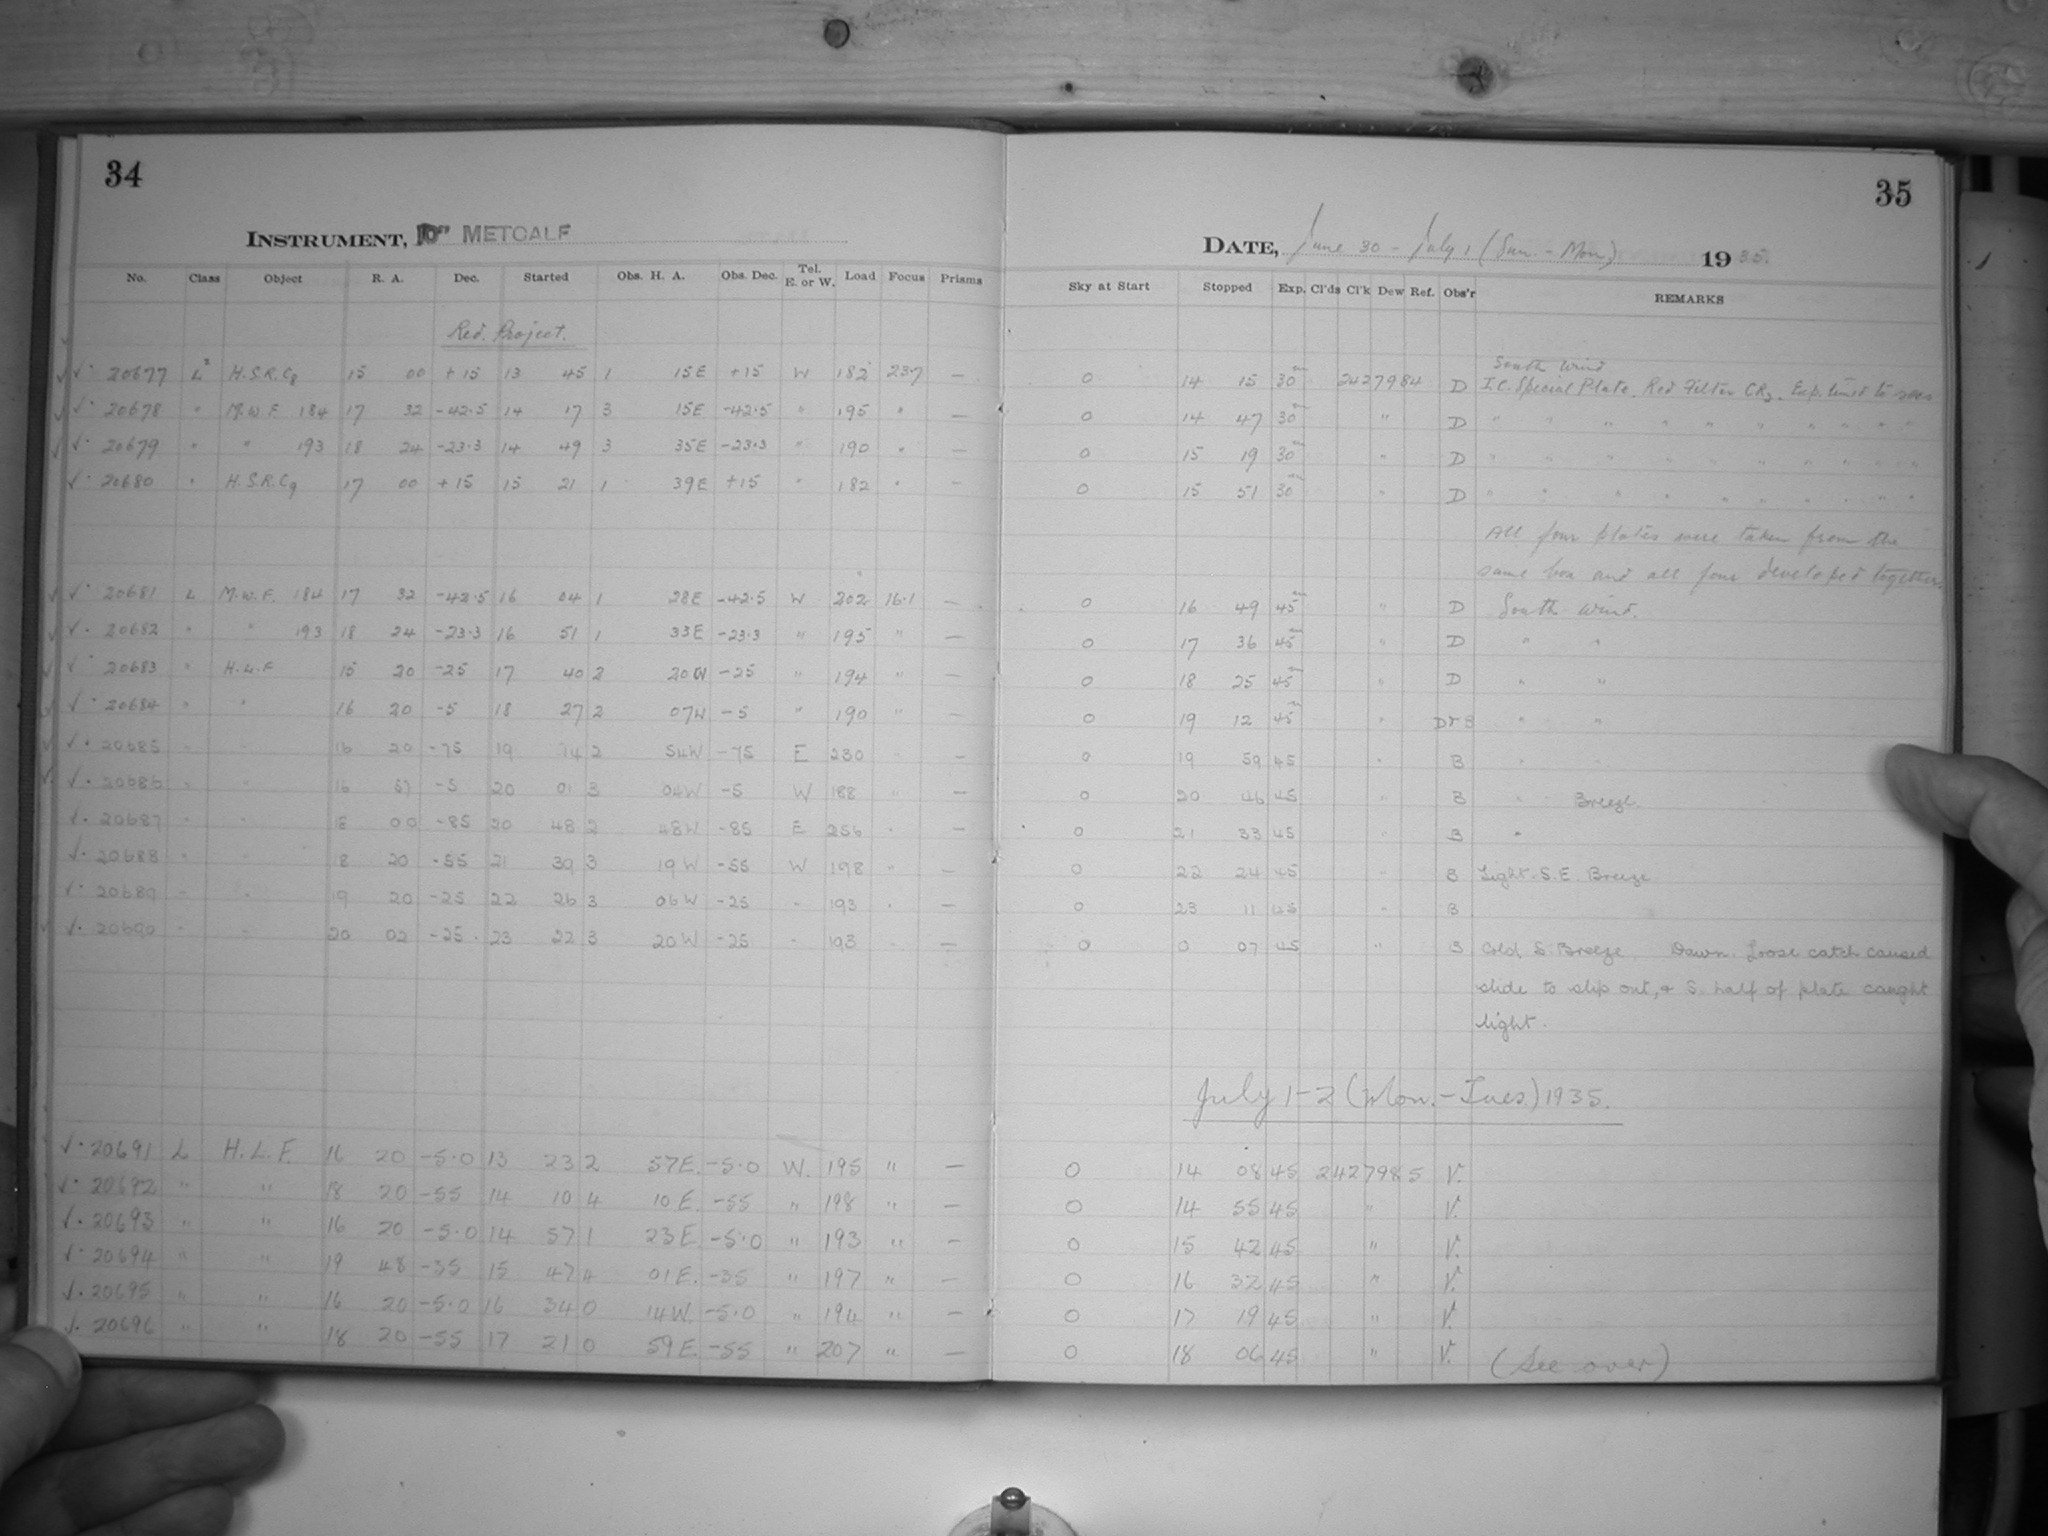 34
35
INSTRUMENT, 10" METCALF
DATE, June 30 - July 1 (Sun. - Mon.) 1935.
No. Class Object R. A. Dec. Started Obs. H. A. Obs. Dec. Tel. E. or W. Load Focus Prisms Sky at Start Stopped Exp. Cl'ds Cl'k Dew Ref. Obs'r REMARKS
Red Project.
South Wind
20677 L² H.S.R.C8 15 00 +15 13 45 1 15E +15 W 182 23.7 — 0 14 15 30m 2427984 D I.C. Special Plate. Red Filter CR2. Exp. limit to secs
20678 " M.W.F. 184 17 32 -42.5 14 17 3 15E -42.5 " 195 " — 0 14 47 30m " D " " " " " " " " " "
20679 " " 193 18 24 -23.3 14 49 3 35E -23.3 " 190 " — 0 15 19 30m " D " " " " " " " " " "
20680 " H.S.R.C9 17 00 +15 15 21 1 39E +15 " 182 " — 0 15 51 30m " D " " " " " " " " " "
All four plates were taken from the
same box and all four developed together.
20681 L M.W.F. 184 17 32 -42.5 16 04 1 28E -42.5 W 202 16.1 — 0 16 49 45m " D South Wind.
20682 " " 193 18 24 -23.3 16 51 1 33E -23.3 " 195 " — 0 17 36 45m " D " "
20683 " H.L.F 15 20 -25 17 40 2 20W -25 " 194 " — 0 18 25 45m " D " "
20684 " " 16 20 -5 18 27 2 07W -5 " 190 " — 0 19 12 45m " D+B " "
20685 " " 16 20 -75 19 14 2 54W -75 E 230 " — 0 19 59 45 " B " "
20686 " " 16 57 -5 20 01 3 04W -5 W 188 " — 0 20 46 45 " B " Breeze.
20687 " " 18 00 -85 20 48 2 48W -85 E 256 " — 0 21 33 45 " B "
20688 " " 18 20 -55 21 39 3 19W -55 W 198 " — 0 22 24 45 " B Light S.E. Breeze
20689 " " 19 20 -25 22 26 3 06W -25 " 193 " — 0 23 11 45 " B
20690 " " 20 02 -25 23 22 3 20W -25 " 193 " — 0 0 07 45 " B Cold S. Breeze. Dawn. Loose catch caused
slide to slip out, + S. half of plate caught
light.
July 1-2 (Mon.-Tues) 1935.
20691 L H.L.F. 16 20 -5.0 13 23 2 57E. -5.0 W. 195 " — 0 14 08 45 2427985 V.
20692 " " 18 20 -55 14 10 4 10E. -55 " 198 " — 0 14 55 45 " V.
20693 " " 16 20 -5.0 14 57 1 23E. -5.0 " 193 " — 0 15 42 45 " V.
20694 " " 19 48 -35 15 47 4 01E. -35 " 197 " — 0 16 32 45 " V.
20695 " " 16 20 -5.0 16 34 0 14W. -5.0 " 194 " — 0 17 19 45 " V.
20696 " " 18 20 -55 17 21 0 59E. -55 " 207 " — 0 18 06 45 " V. (See over)